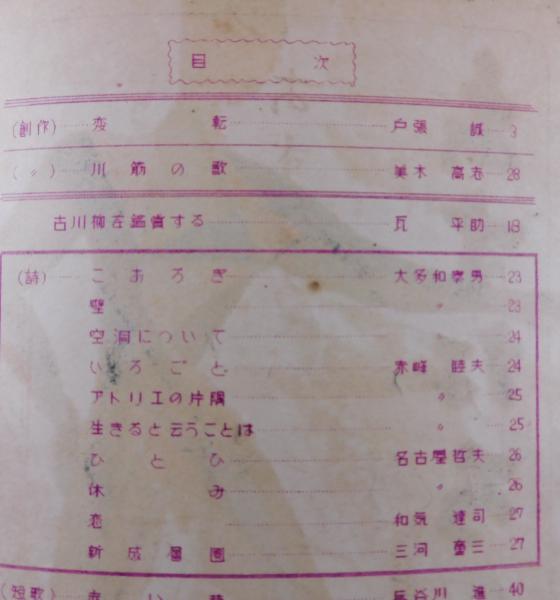 目次
(創作) 変転 戸張 誠 3
(〃) 川筋の歌 美木 高志 28
古川柳を鑑賞する 瓦 平助 18
(詩) こおろぎ 大多和泰男 23
壁 〃 23
空洞について 〃 24
いろごと 赤峰 睦夫 24
アトリエの片隅 〃 25
生きると云うことは 〃 25
ひとひ 名古屋哲夫 26
休み 〃 26
恋 和気 達司 27
新成層圏 三河 童三 27
(短歌) 赤い 長谷川 進 40